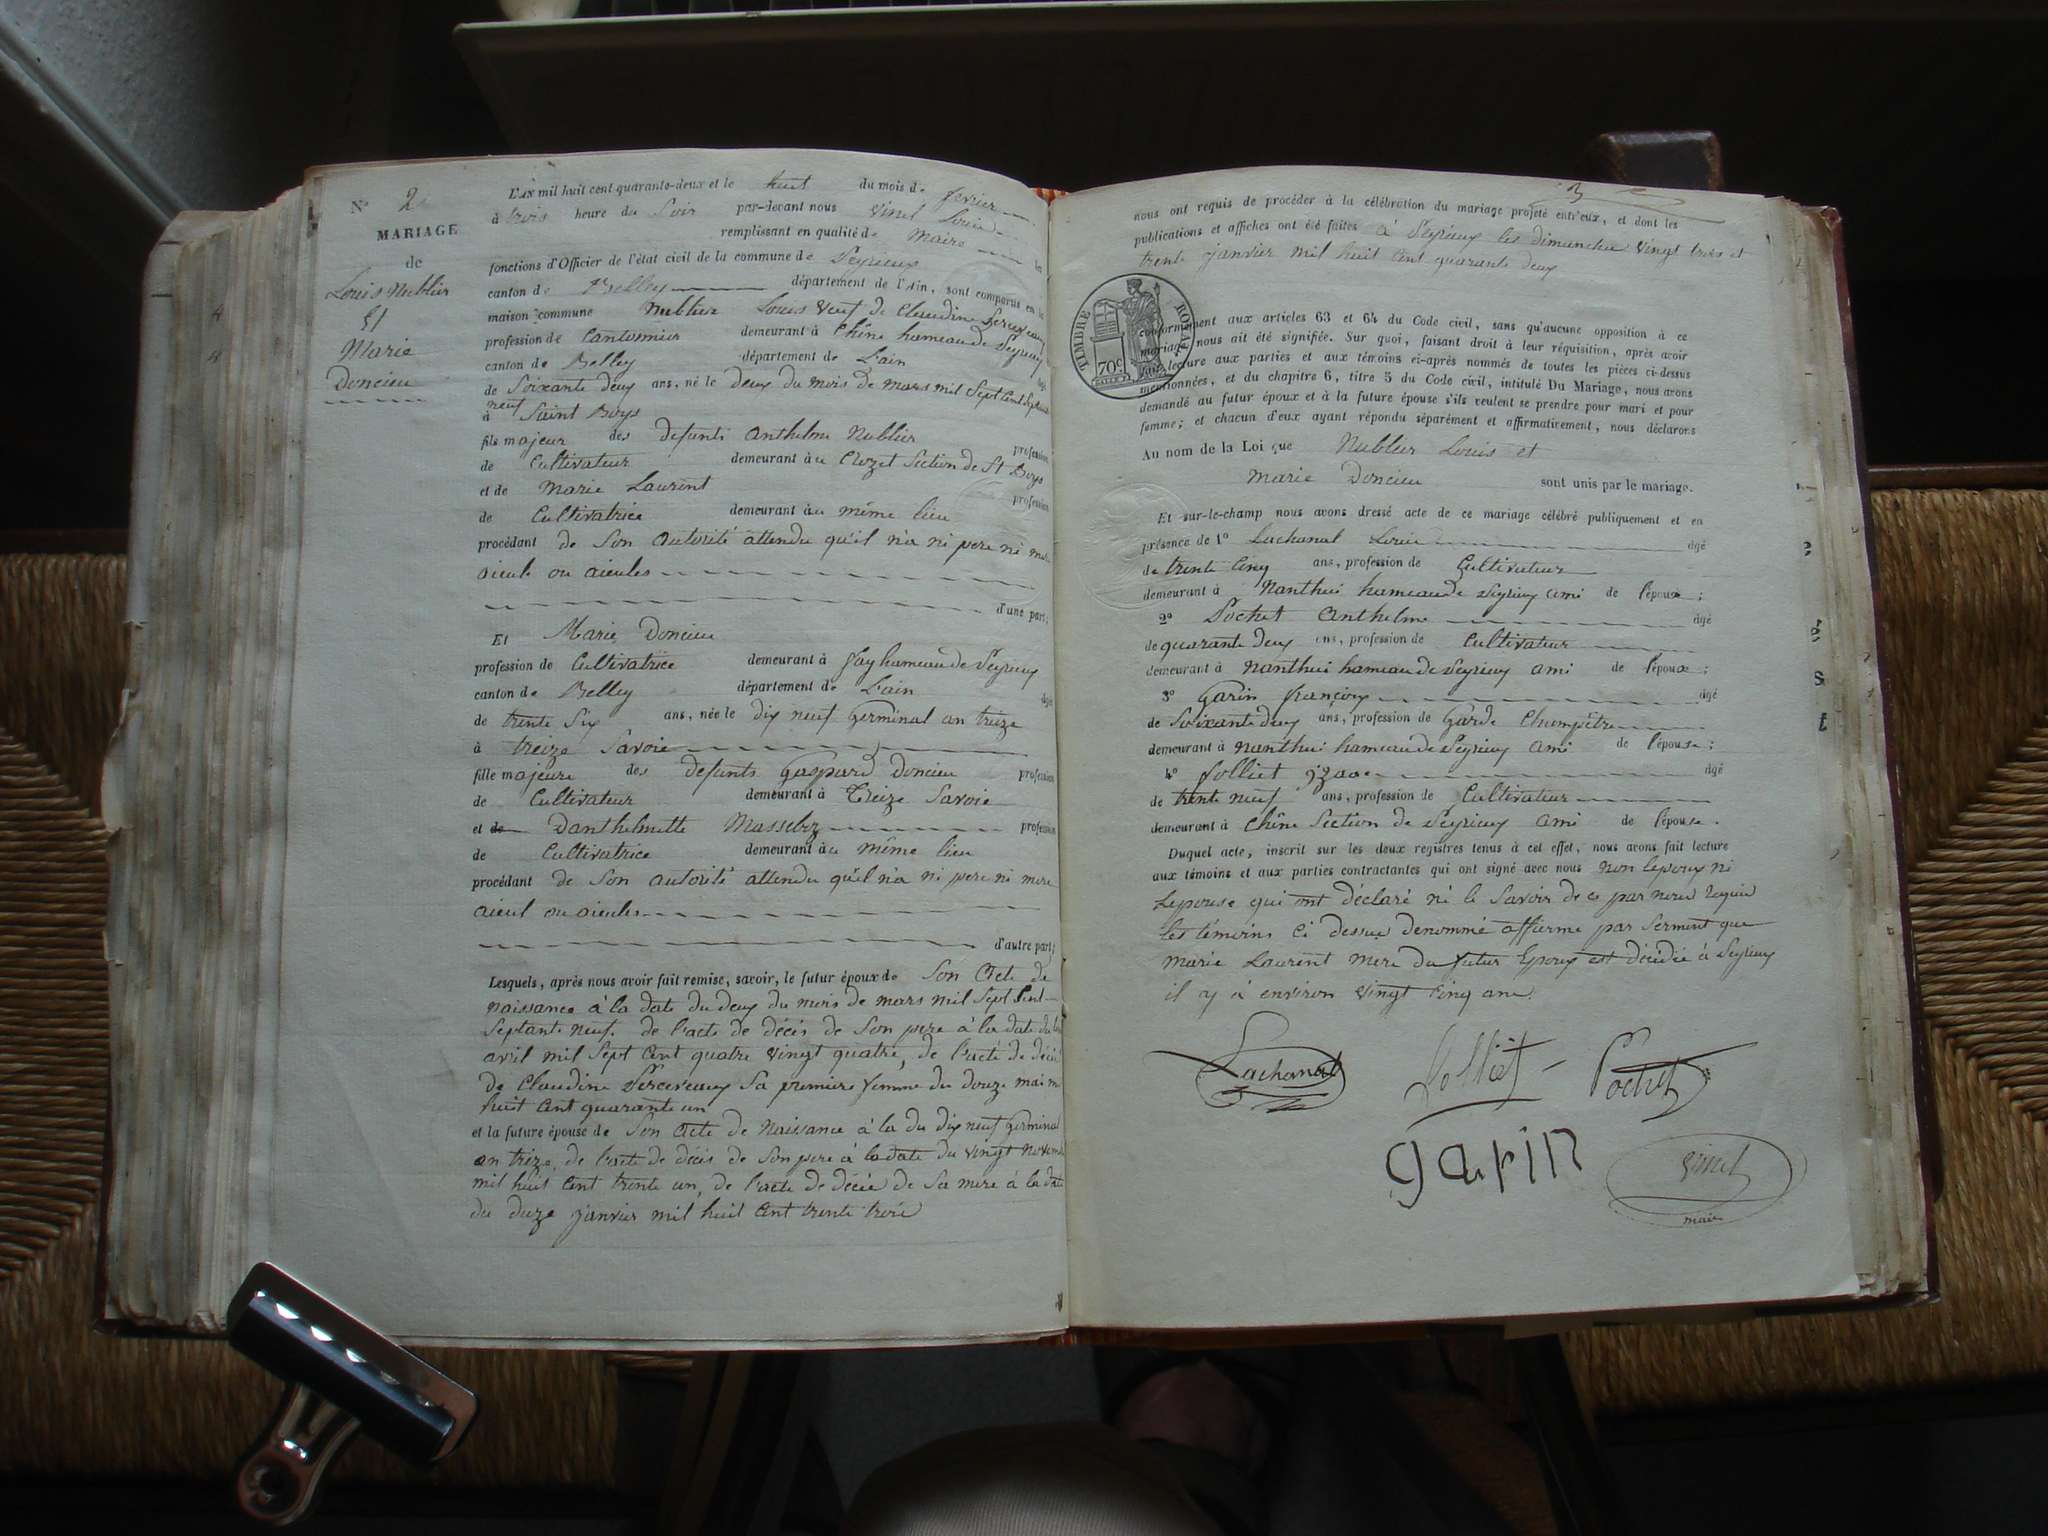 N° 2
MARIAGE
de
Louis Nublier
Et
Marie
Doncieu
L'AN mil huit cent quarante-deux et le huit du mois de fevrier
à trois heure du Soir par-devant nous Vinel
remplissant en qualité de Maire les
fonctions d'Officier de l'état civil de la commune de Peyrieux
canton de Belley département de l'Ain, sont comparus en la
maison commune Nublier Louis Veuf de Claudine
profession de Cantonnier demeurant à Chêne hameau de Peyrieux
canton de Belley département de L'ain âgé
de Soixante deux ans, né le deux du mois de mars mil Sept Cent Septante
neuf
à Saint Boys
fils majeur des defunts Anthelme Nublier profession
de Cultivateur demeurant au Crozet Section de St Boys
et de Marie Laurent profession
de Cultivatrice demeurant au même lieu
procédant de Son autorité attendu qu'il n'a ni pere ni mere
aieuls ou aieules
d'une part;
Et Marie Doncieu
profession de Cultivatrice demeurant à fay hameau de Peyrieux
canton de Belley département de L'ain âgé
de trente Six ans, née le dix neuf Germinal an treize
à treize Savoie
fille majeure des defunts Gaspard Doncieu profession
de Cultivateur demeurant à Treize Savoie
et de Danthelmette Masseboz profession
de Cultivatrice demeurant au même lieu
procédant de Son autorité attendu qu'el n'a ni pere ni mere
aieul ou aieules
d'autre part;
Lesquels, après nous avoir fait remise, savoir, le futur époux de Son Acte de
naissance à la date du deux du mois de mars mil Sept Cent
Septante neuf. de l'acte de décès de Son pere à la date du
avril mil Sept Cent quatre vingt quatre, de l'acte de décès
de Claudine Perceveaux Sa premiere femme du douze mai mil
huit Cent quarante un
et la future épouse de Son Acte de Naissance à la du dix neuf Germinal
an treize, de l'acte de décès de Son pere à la date du vingt Novembre
mil huit Cent trente un, de l'acte de décès de Sa mere à la date
du duze janvier mil huit Cent trente trois
3
nous ont requis de procéder à la célébration du mariage projeté entr'eux, et dont les
publications et affiches ont été faites à Peyrieux les dimanches vingt trois et
trente janvier mil huit Cent quarante deux
TIMBRE ROYAL
70c
conformément aux articles 63 et 64 du Code civil, sans qu'aucune opposition à ce
mariage nous ait été signifiée. Sur quoi, faisant droit à leur réquisition, après avoir
fait lecture aux parties et aux témoins ci-après nommés de toutes les pièces ci-dessus
mentionnées, et du chapitre 6, titre 5 du Code civil, intitulé Du Mariage, nous avons
demandé au futur époux et à la future épouse s'ils veulent se prendre pour mari et pour
femme; et chacun d'eux ayant répondu séparément et affirmativement, nous déclarons
Au nom de la Loi que Nublier Louis et
Marie Doncieu sont unis par le mariage.
Et sur-le-champ nous avons dressé acte de ce mariage célébré publiquement et en
présence de 1° Lachanal Louis âgé
de trente Cinq ans, profession de Cultivateur
demeurant à Nanthui hameau de Peyrieux ami de l'épouse;
2° Pochet Anthelme âgé
de quarante deux ans, profession de Cultivateur
demeurant à Nanthui hameau de Peyrieux ami de l'époux;
3° Garin françois âgé
de Soixante deux ans, profession de Garde Champêtre
demeurant à Nanthui hameau de Peyrieux ami de l'épouse;
4° Folliet Yzaac âgé
de trente neuf ans, profession de Cultivateur
demeurant à Chêne Section de Peyrieux ami de l'épouse.
Duquel acte, inscrit sur les deux registres tenus à cet effet, nous avons fait lecture
aux témoins et aux parties contractantes qui ont signé avec nous non l'epoux ni
L'epouse qui ont déclaré ni le Savoir de ce par nous requis
les témoins Ci dessus denommé affirme par Serment que
Marie Laurent mere du futur Epoux est décédée à Peyrieux
il y à environ vingt Cinq ans.
Lachanal Folliet Pochet
garin Vinel
maire